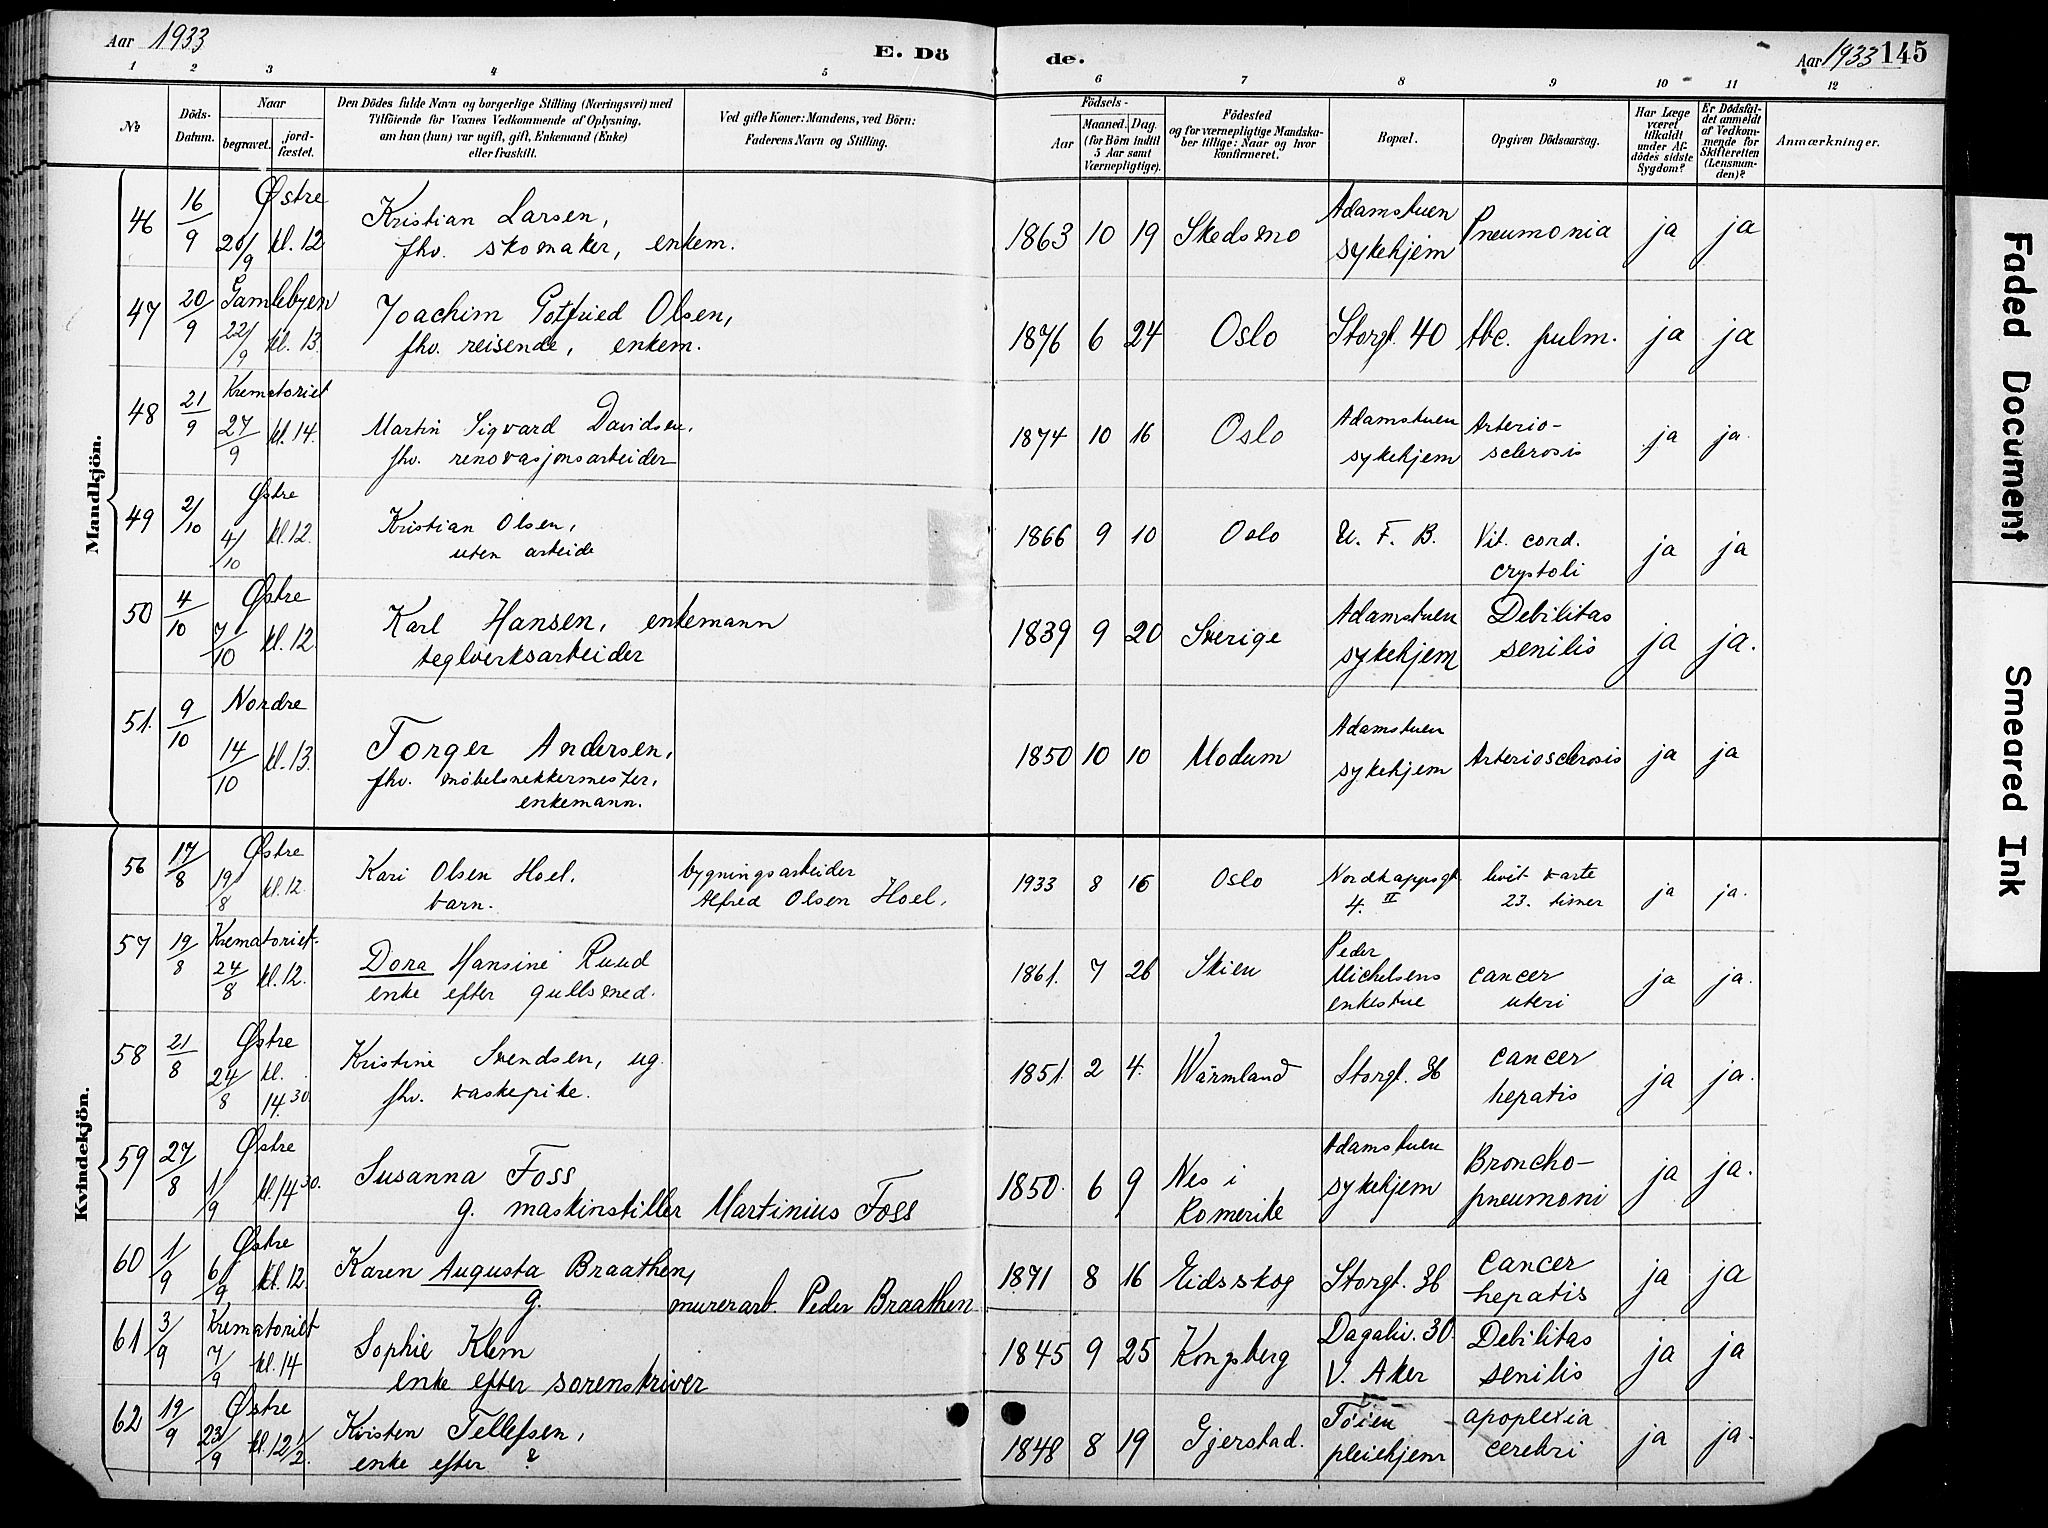 Aar 1933
E. Dö
de.
Aar 1933 145
1 2 3 4 5 6 7 8 9 10 11 12
№
Döds-Datum.
Naar
begravet.
jord-fæstet.
Den Dödes fulde Navn og borgerlige Stilling (Næringsvei) med
Tilföiende for Voxnes Vedkommende af Oplysning,
om han (hun) var ugift, gift, Enkemand (Enke)
eller fraskilt.
Ved gifte Koner: Mandens, ved Börn:
Faderens Navn og Stilling.
Födsels-
Aar
Maaned. Dag.
(for Börn indtil
5 Aar samt
Værnepligtige).
Födested
og for værnepligtige Mandska-
ber tillige: Naar og hvor
konfirmeret.
Bopæl.
Opgiven Dödsaarsag.
Har Læge
været
tilkaldt
under Af-
dödes sidste
Sygdom?
Er Dödsfal-
det anmeldt
af Vedkom-
mende for
Skifteretten
(Lensman-
den)?
Anmærkninger.
Mandkjön.
46 16/9 Østre 20/9 kl. 12 Kristian Larsen,
fhv. skomaker, enkem. 1863 10 19 Skedsmo Adamstuen
sykehjem Pneumonia ja ja
47 20/9 Gamlebyen 22/9 kl. 13. Joachim Gotfried Olsen,
fhv. reisende, enkem. 1876 6 24 Oslo Storgt. 40 tbc. pulm. ja ja
48 21/9 Krematoriet 27/9 kl. 14. Martin Sigvard Davidsen,
fhv. renovasjonsarbeider 1874 10 16 Oslo Adamstuen
sykehjem Arterio-
sclerosis ja ja.
49 2/10 Østre 4/10 kl. 12. Kristian Olsen,
uten arbeide 1866 9 10 Oslo U. F. B. Vit. cord.
crystoli ja ja
50 4/10 Østre 7/10 kl. 12. Karl Hansen, enkemann
teglverksarbeider 1839 9 20 Sverige Adamstuen
sykehjem Debilitas
senilis ja ja.
51. 9/10 Nordre 14/10 kl. 13. Torger Andersen,
fhv. møbelsnekkermester,
enkemann. 1850 10 10 Modum Adamstuen
sykehjem Arteriosclerosis ja ja
Kvindekjön.
56 17/8 Østre 19/8 kl. 12. Kari Olsen Hoel.
barn. bygningsarbeider
Alfred Olsen Hoel. 1933 8 16 Oslo Nordkappgt.
4. II levit varte
23. timer ja ja.
57 19/8 Krematoriet. 24/8 kl. 12. Dora Hansine Ruud
enke efter gullsmed. 1861. 7 26 Skien Peder
Michelsens
enkestue cancer
uteri ja ja.
58 21/8 Østre 24/8 kl. 14.30 Kristine Svendsen, ug.
fhv. vaskepike. 1851. 2 4. Wärmland Storgt. 36 cancer
hepatis ja ja.
59 27/8 Østre 1/9 kl. 14 30. Susanna Foss
g. maskinstiller Martinius Foss 1850. 6 9 Nes i
Romerike Adamstuen
sykehjem Broncho-
pneumoni ja ja.
60 1/9 Østre 6/9 kl. 12 Karen Augusta Braathen,
g. murerarb. Peder Braathen 1871 8 16 Eidsskog Storgt. 36 cancer
hepatis ja ja
61 3/9 Krematoriet 7/9 kl. 14 Sophie Klem
enke efter sorenskriver 1845 9 25 Kongsberg Dagaliv. 30
V. Aker Debilitas
senilis ja ja
62 19/9 Østre 23/9 kl. 12 1/2. Kristen Tellefsen,
enke efter ? 1848 8 19 Gjerstad. Tøien
pleiehjem apoplexia
cerebri ja ja.
Faded Document
Smeared Ink